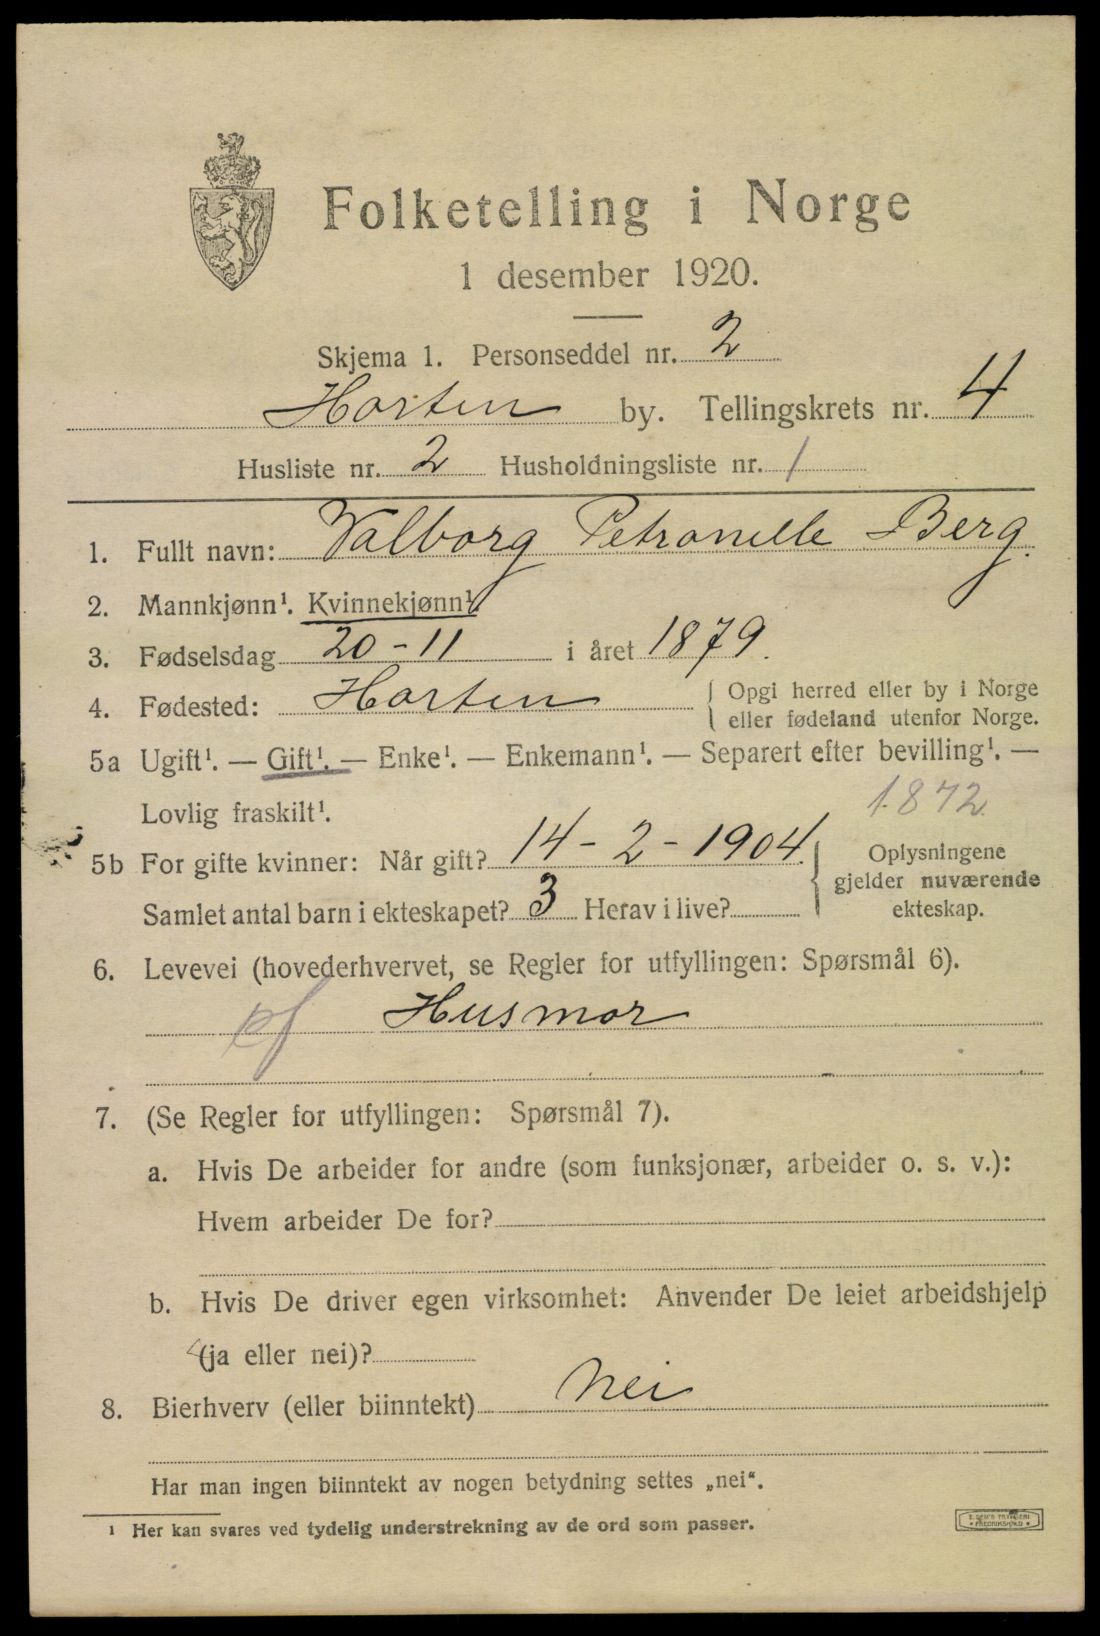 Folketelling i Norge
1 desember 1920.
Skjema 1. Personseddel nr. 2
Horten by. Tellingskrets nr. 4
Husliste nr. 2 Husholdningsliste nr. 1
1. Fullt navn: Valborg Petronelle Berg.
2. Mannkjønn¹. Kvinnekjønn¹.
3. Fødselsdag 20-11 i året 1879.
4. Fødested: Horten { Opgi herred eller by i Norge
eller fødeland utenfor Norge.
5a Ugift¹. — Gift¹. — Enke¹. — Enkemann¹. — Separert efter bevilling¹. —
Lovlig fraskilt¹. 1872
5b For gifte kvinner: Når gift? 14-2-1904. { Oplysningene
gjelder nuværende
Samlet antal barn i ekteskapet? 3 Herav i live? ekteskap.
6. Levevei (hovederhvervet, se Regler for utfyllingen: Spørsmål 6).
pf Husmor
7. (Se Regler for utfyllingen: Spørsmål 7).
a. Hvis De arbeider for andre (som funksjonær, arbeider o. s. v.):
Hvem arbeider De for?
b. Hvis De driver egen virksomhet: Anvender De leiet arbeidshjelp
(ja eller nei)?
8. Bierhverv (eller biinntekt) Nei
Har man ingen biinntekt av nogen betydning settes „nei“.
¹ Her kan svares ved tydelig understrekning av de ord som passer.
E. SEM'S TRYKKERI
FREDRIKSHALD